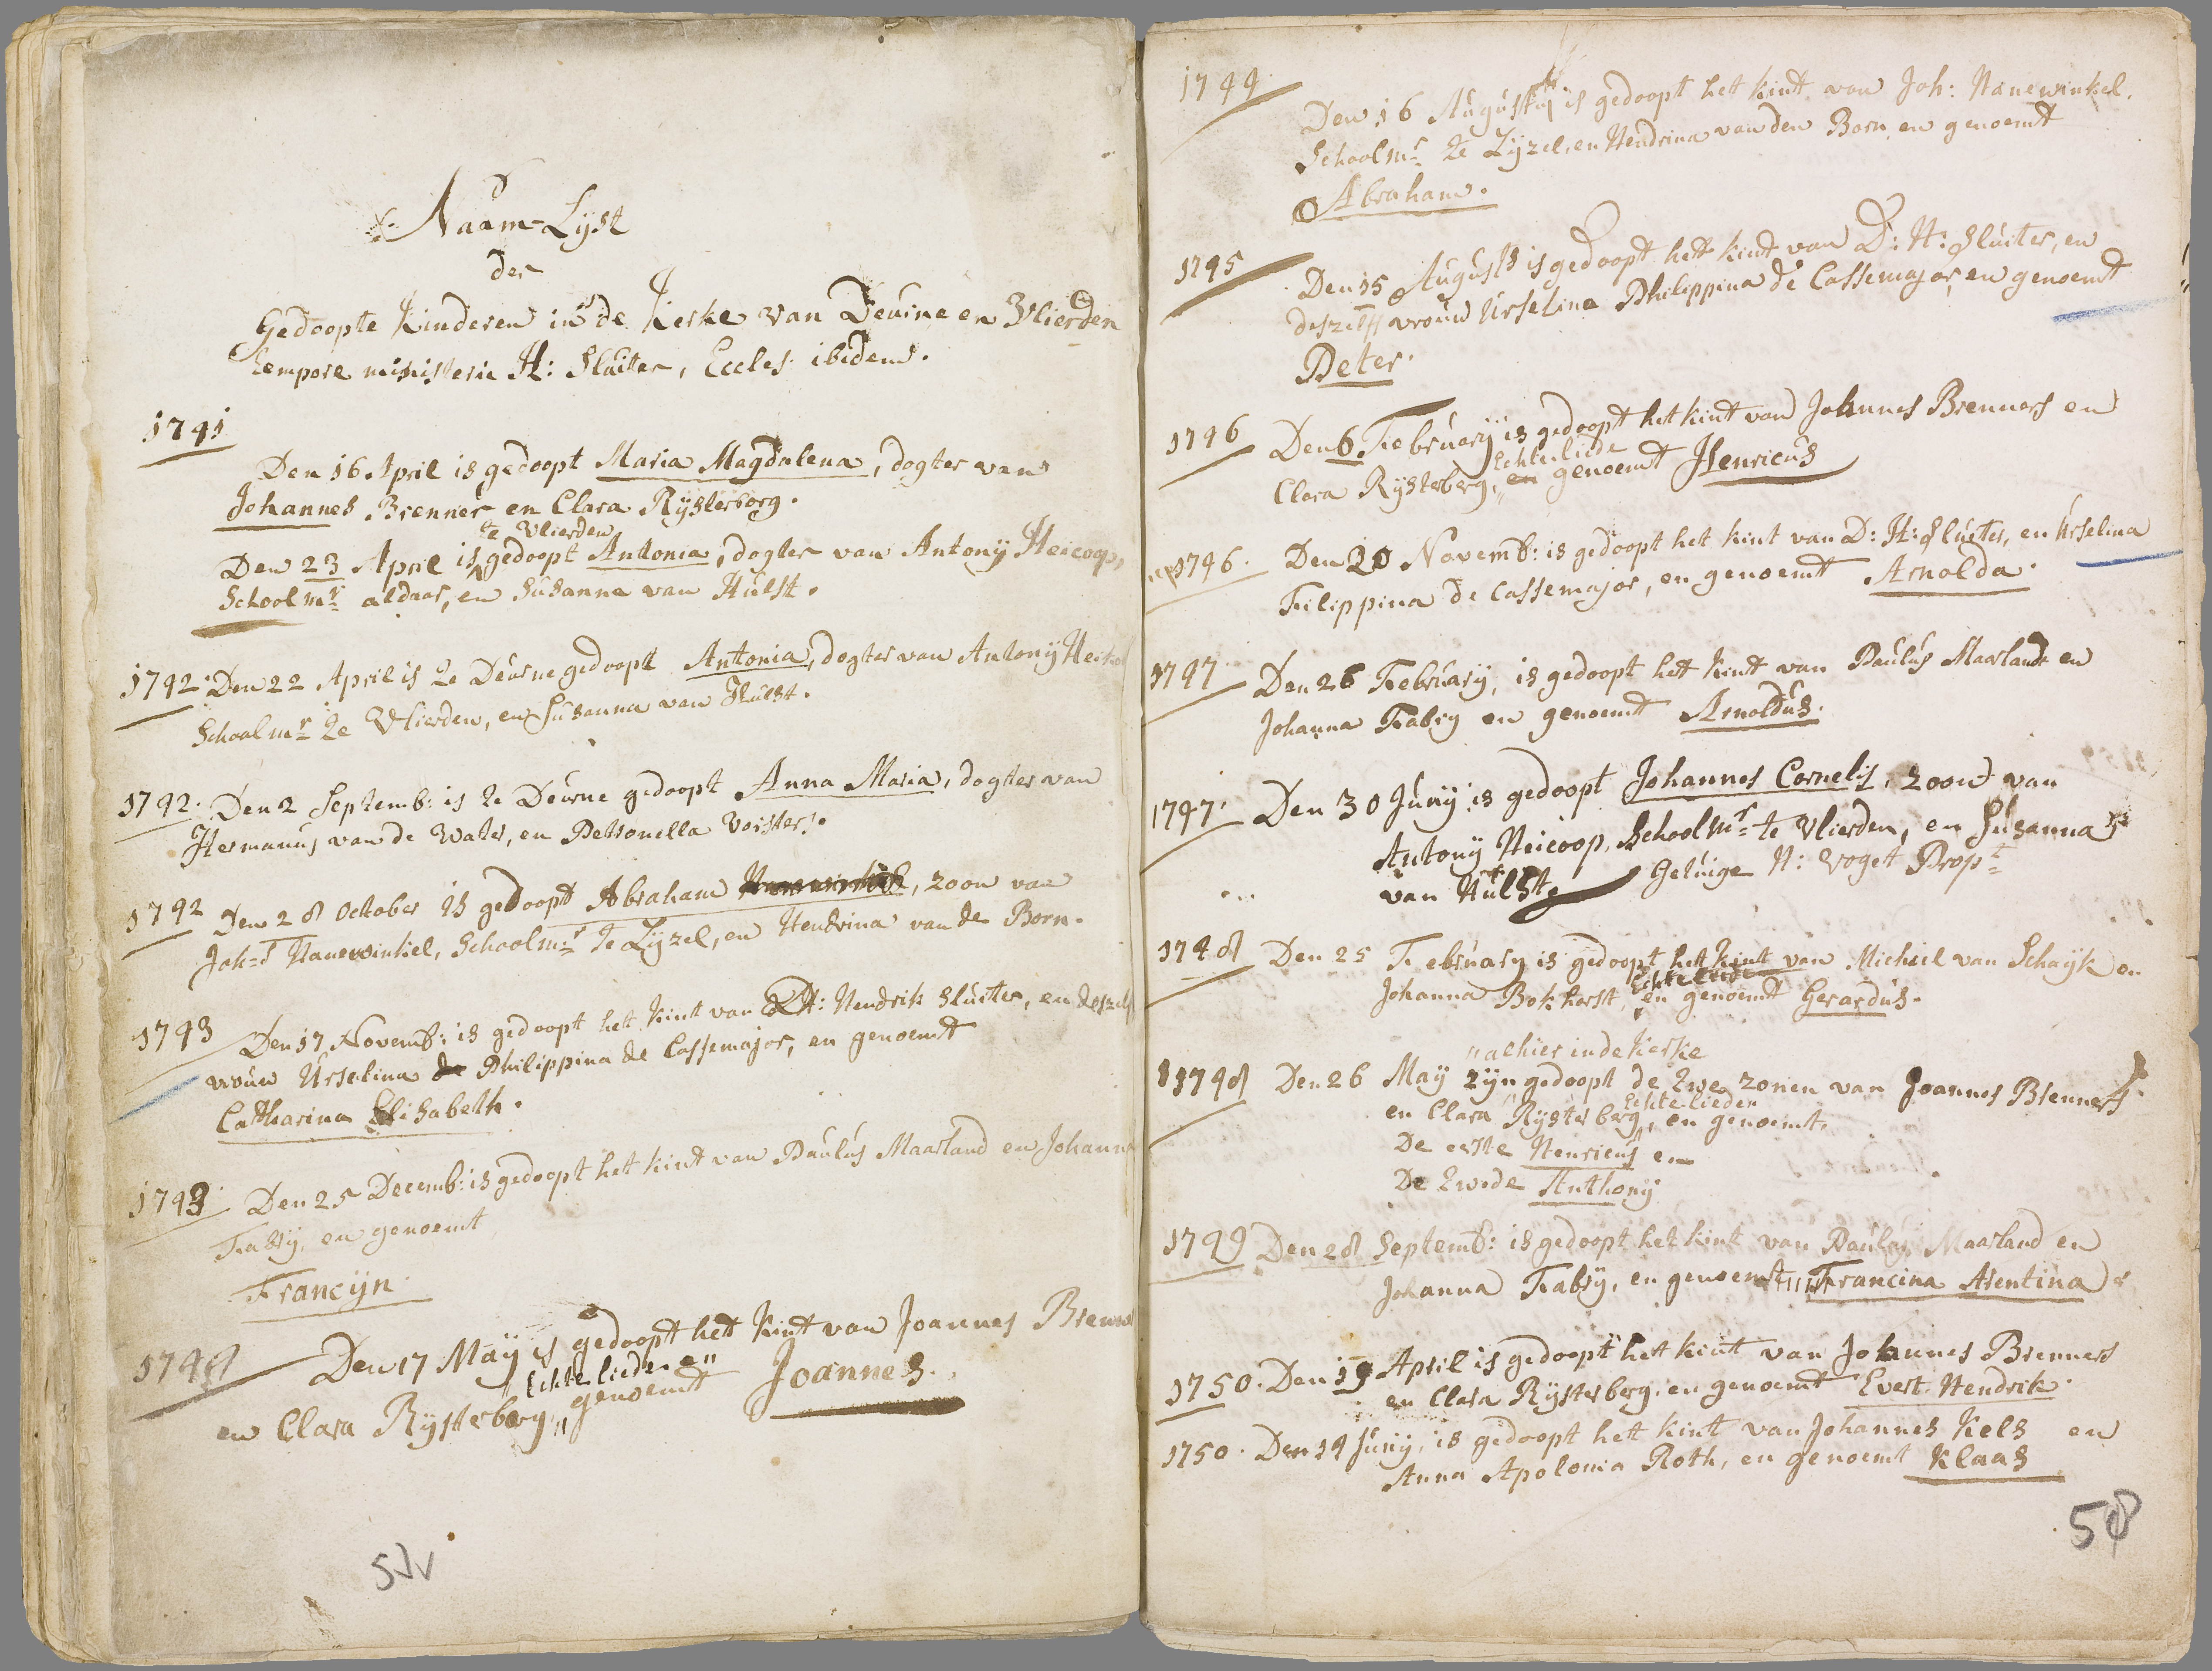 Naam-Lijst
der
Gedoopte Kinderen in de Kerke van Deurne en Vlierden
tempore ministerii H: Sluiter, Eccles: ibidem.
1741
Den 16 April is gedoopt Maria Magdalena, dogter van
Johannes Brenner en Clara Rijsterborg.
te Vlierden
Den 23 April is gedoopt Antonia, dogter van Antonij Heicoop,
Schoolmr aldaar, en Susanna van Hulst.
1742. Den 22 April is te Deurne gedoopt Antonia, dogter van Antonij Heico
Schoolmr te Vlierden, en Susanna van Hulst.
1742. Den 2 Septemb: is te Deurne gedoopt Anna Maria, dogter van
Hermanus van de Water, en Petronella Voisters.
1742 Den 28 October is gedoopt Abraham, zoon van
Joh=s Hanewinkel, Schoolmr te Lijzel, en Hendrina van de Born.
1743 Den 17 Novemb: is gedoopt het kint van D: Hendrik Sluiter, en deszelfs
vrouw Urselina de Philippina de Cassemajor, en genoemt
Catharina Elisabeth.
1743 Den 25 Decemb: is gedoopt het kint van Paulus Maarland en Johanna
Fabrij, en genoemt
Francijn.
1744 Den 17 Maij is gedoopt het kint van Joannes Brenne
Echtelieden en
en Clara Rijsterberg, genoemt Joannes.
57v
1744
Den 16 Augustij is gedoopt het kint van Joh: Hanewinkel.
Schoolmr te Lijzel, en Hendrina van den Born, en genoemt
Abraham.
1745 Den 15 Augusts is gedoopt het kint van D: H: Sluiter, en
deszelfs vrouw Urselina Philippina de Cassemajor, en genoemt
Peter.
1746 Den 6 February is gedoopt het kint van Johannes Brenners en
Echteliede
Clara Rijsterberg, en genoemt Henricus
1746. Den 20 Novemb: is gedoopt het kint van D: H: Sluiter, en Urselina
Filippina de Cassemajor, en genoemt Arnolda.
1747 Den 26 February, is gedoopt het kint van Paulus Maarland en
Johanna Fabry en genoemt Arnoldus.
1747. Den 30 Junij is gedoopt Johannes Cornelis, zoon van
Antonij Heicoop, Schoolmr te Vlierden, en Susanna
van Hulst, Getuige H: Voget Propt
1748 Den 25 February is gedoopt het kint van Michiel van Schaijk en
Echteliede
Johanna Bokhorst, en genoemt Gerardus.
alhier in de Kerke
1748 Den 26 Maij zijn gedoopt de twe zonen van Joannes Brenners
Echtelieden
en Clara Rijsterberg, en genoemt,
De eerste Henricus en
De twede Anthony
1749 Den 28 Septemb: is gedoopt het kint van Paulus Maarland en
Johanna Fabrij, en genoemt Francina Arentina
1750. Den 19 April is gedoopt het kint van Johannes Brenners
en Clara Rijsterberg, en genoemt Evert Hendrik.
1750. Den 14 Junij, is gedoopt het kint van Johannes Kels en
Anna Apolonia Roth, en genoemt Klaas
58